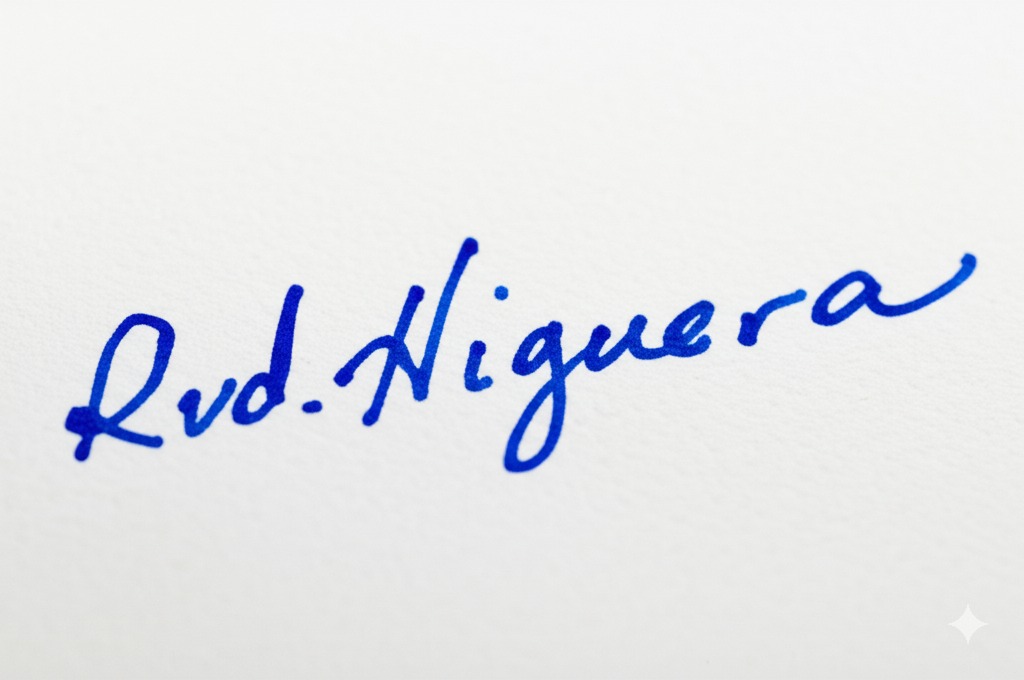 Rvd. Higuera